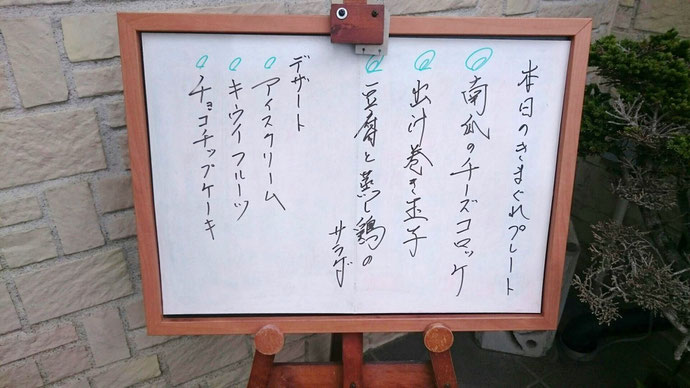 本日のきまぐれプレート
南瓜のチーズコロッケ
出汁巻き玉子
豆腐と蒸し鶏の
サラダ
デザート
アイスクリーム
キウイフルーツ
チョコチップケーキ